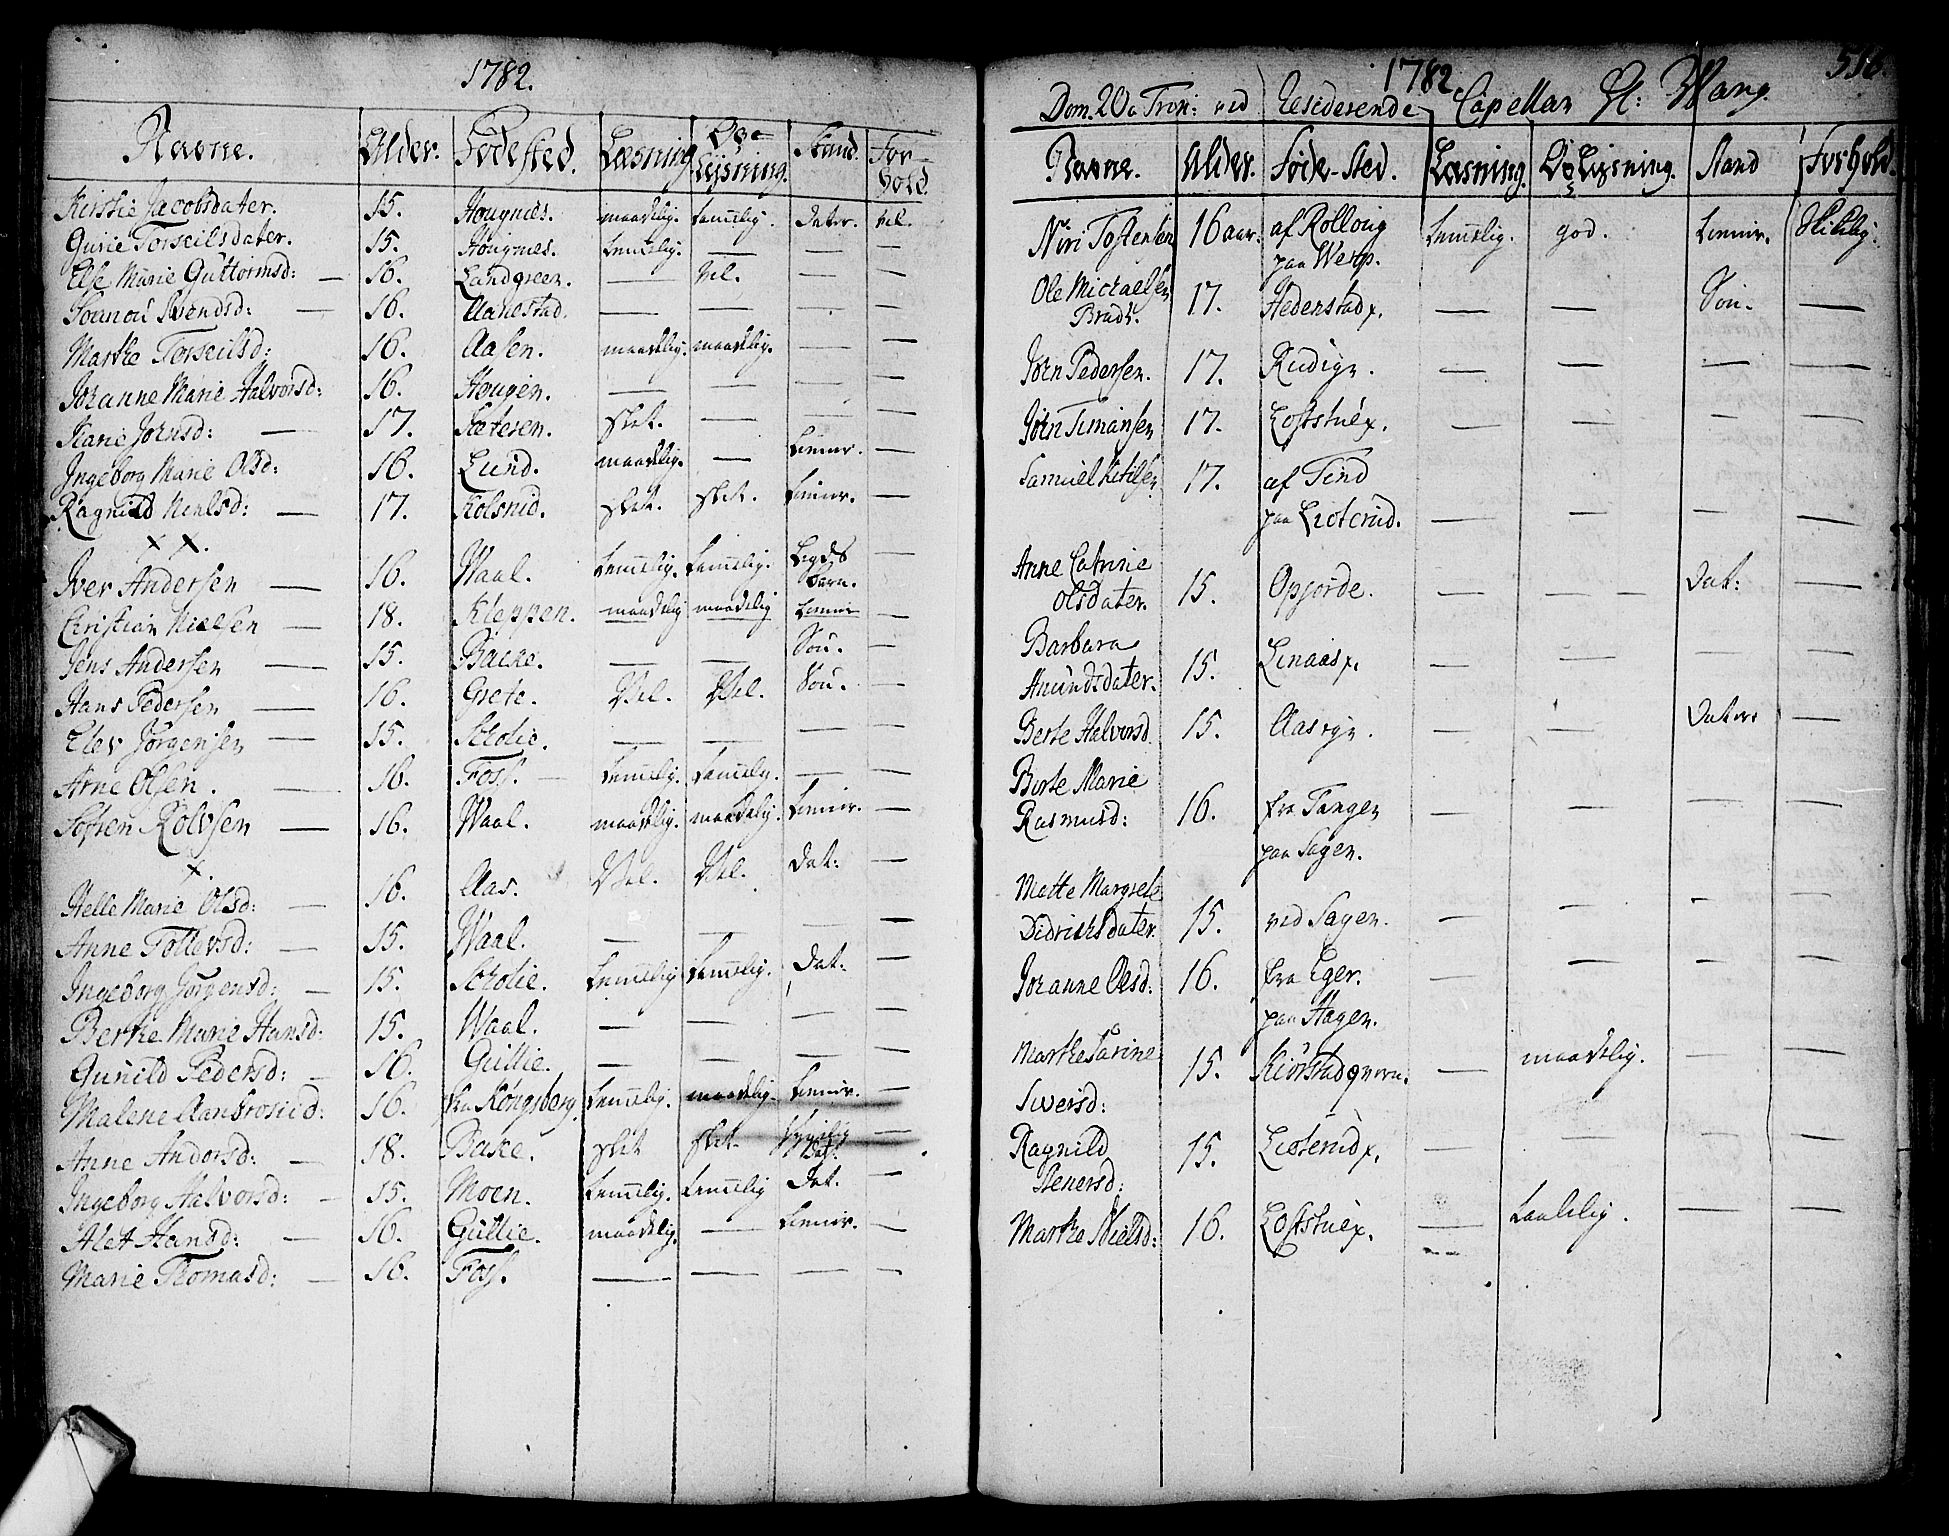 1782.
Navne. Alder. Fødested. Læsning Op- Stand. For-
Lysning. hold.
Kirstie Jacobsdater. 15. Hougnes. maadelig. temelig. Dater. vel.
Gurie Torseilsdater. 15. Hougnes. temelig. — — —
Else Marie Guttormsd: — 16. Landgreen. — Vel. — —
Gunnou Svendsd: — 16. Aanestad. — — — —
Marthe Torseilsd: 16. Aasen. maadelig. maadelig. — —
Johanne Marie Halvorsd: 16. Hougen. — — — —
Karie Jørnsd: — 17. Sætesen. slet. — — —
Ingeborg Marie Olsd: 16. Lund. maadelig. — —
Ragnild Nielsd: — 17. Kolsrud. slet. slet. —
x x.
Iver Andersen — 16. Waal. temelig. temelig. Legds —
Barn.
Christian Nielsen — 18. Kleppen. maadelig maadelig —
Jens Andersen — 15. Backe. — — Søn. —
Hans Pedersen — 16. Grete. Vel. Vel. Søn. —
Elev Jørgensen — 15. Scholie. — — — —
Arne Olsen. — 16. Foss. — temelig. temelig. — —
Sofren Rolvsen — 16. Waal. maadelig. maadelig. —
x.
Helle Marie Olsd: — 16. Aas. Vel. Vel. Dat: —
Anne Tollevsd: — 15. Waal. — — — —
Ingeborg Jørgensd: — 15. Scholie. temelig temelig. Dat: —
Berthe Marie Hansd: 15. Waal. — — — —
Gunild Pedersd: — 16. Gullie. — — — —
Malene Aambrosiid: 16. fra Kongsberg. temelig. maadelig. —
Anne Andersd: — 18. Bake. slet slet. —
Ingeborg Halvorsd: — 15. Moen. temelig. temelig Dat. —
Alet Hansd: — 16. Gullie. maadelig. — —
Marie Thomasd: — 16. Foss. — — — —
516.
1782
Dom. 20 a Trin: ved Residerende Capellan H: Wang.
Navne. Alder. Føde-Sted. Læsning. Oplysning. Stand Forhold.
Niri Tostensen 16 aar. af Rolloug temelig. god. Skikkelig.
paa Werp.
Ole Michaelsen 17. Hedenstad p. — — Søn. —
Braat.
Jørn Pedersen. 17. Rudign. — — — —
Jørn Simansen 17. Loftstue p. — — — —
Samuel Ketilsen 17. af Tind
paa Listerud. — — — —
Anne Catrine
Olsdater. 15. Opjorde. — — — Dat: —
Barbara
Amundsdater. 15. Linaas p. — — — —
Berte Halvorsd. 15. Aas — — Dater —
Birte Marie
Rasmusd: 16. fra Tangen — — — —
paa Sagen.
Mette Margrete
Didrichsdater 15. ved Sagen. — — — —
Johanne Olsd: 16. fra Eger. — — — —
paa Hagen.
Marthe Karine 15. Kiørstadqvern. — maadelig. — —
Siversd:
Ragnild 15. Listerud p. — — — —
Stenersd:
Marthe Nielsd: 16. Loftstue p. — taalelig. — —